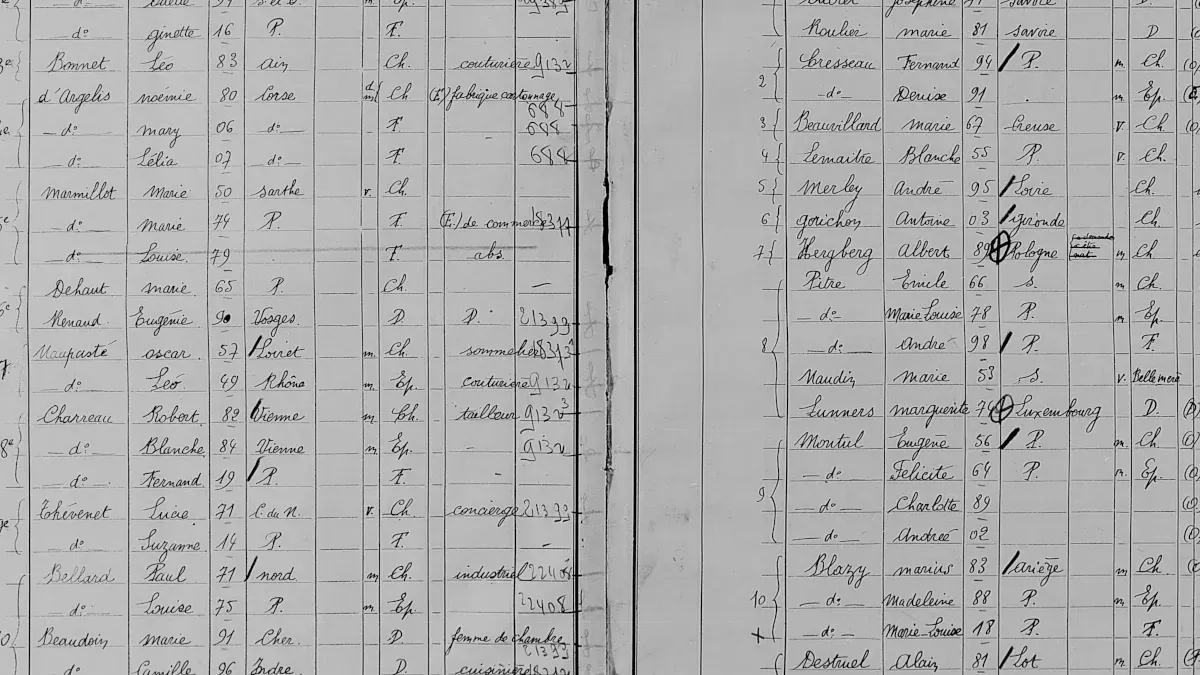 do ginette 16 P. F.
Bonnet Léo 83 ain Ch. couturière 9132
d'Argelis noémie 80 Corse Ch (E) fabrique cartonnage 688
do mary 06 do F. 688
do Lélia 07 do F. 688
Marmillot Marie 50 Sarthe v. Ch.
do marie 74 P. F. (E.) de commerce
do Louise 79 F. abs.
Dehaut marie 65 P. Ch. —
Renaud Eugénie 90 Vosges D. D. 21399
Naupasté oscar 57 Loiret m. Ch. sommelier
do Léo 49 Rhône m Ep. couturière 9132
Charreau Robert 82 Vienne m Ch. tailleur 9132
do Blanche 84 Vienne m Ep. - 9132
do Fernand 19 P. F. -
Thévenet Lucie 71 C. du N. v. Ch. concierge 21399
do Suzanne 14 P. F. —
Bellard Paul 71 nord m Ch. industriel 22408
do Louise 75 P. m Ep. 22408
Beaudoin marie 91 Cher D. femme de chambre 21399
do Camille 96 Indre D. cuisinière
Roulier marie 81 Savoie D
2 Cresseau Fernand 94 P. m Ch.
do Denise 91 . m Ep.
3 Beauvillard marie 67 Creuse v. Ch.
4 Lemaitre Blanche 55 P. v. Ch.
5 Merley André 95 Loire Ch.
6 gorichon Antoine 03 gironde Ch
7 Hergberg Albert 89 Pologne m Ch
8 Pitre Emile 66 S. m Ch.
do Marie Louise 78 P. m Ep.
do André 98 P. F.
Naudin marie 53 S. v. Belle mère
Lunners marguerite 74 Luxembourg D.
9 Montul Eugène 56 P. m. Ch.
do Felicité 64 P. m. Ep.
do Charlotte 89
do Andrée 02
10 Blazy marius 83 ariège m Ch
do Madeleine 88 P. m Ep.
do Marie-Louise 18 P. F.
Destruel Alain 81 Lot m Ch.